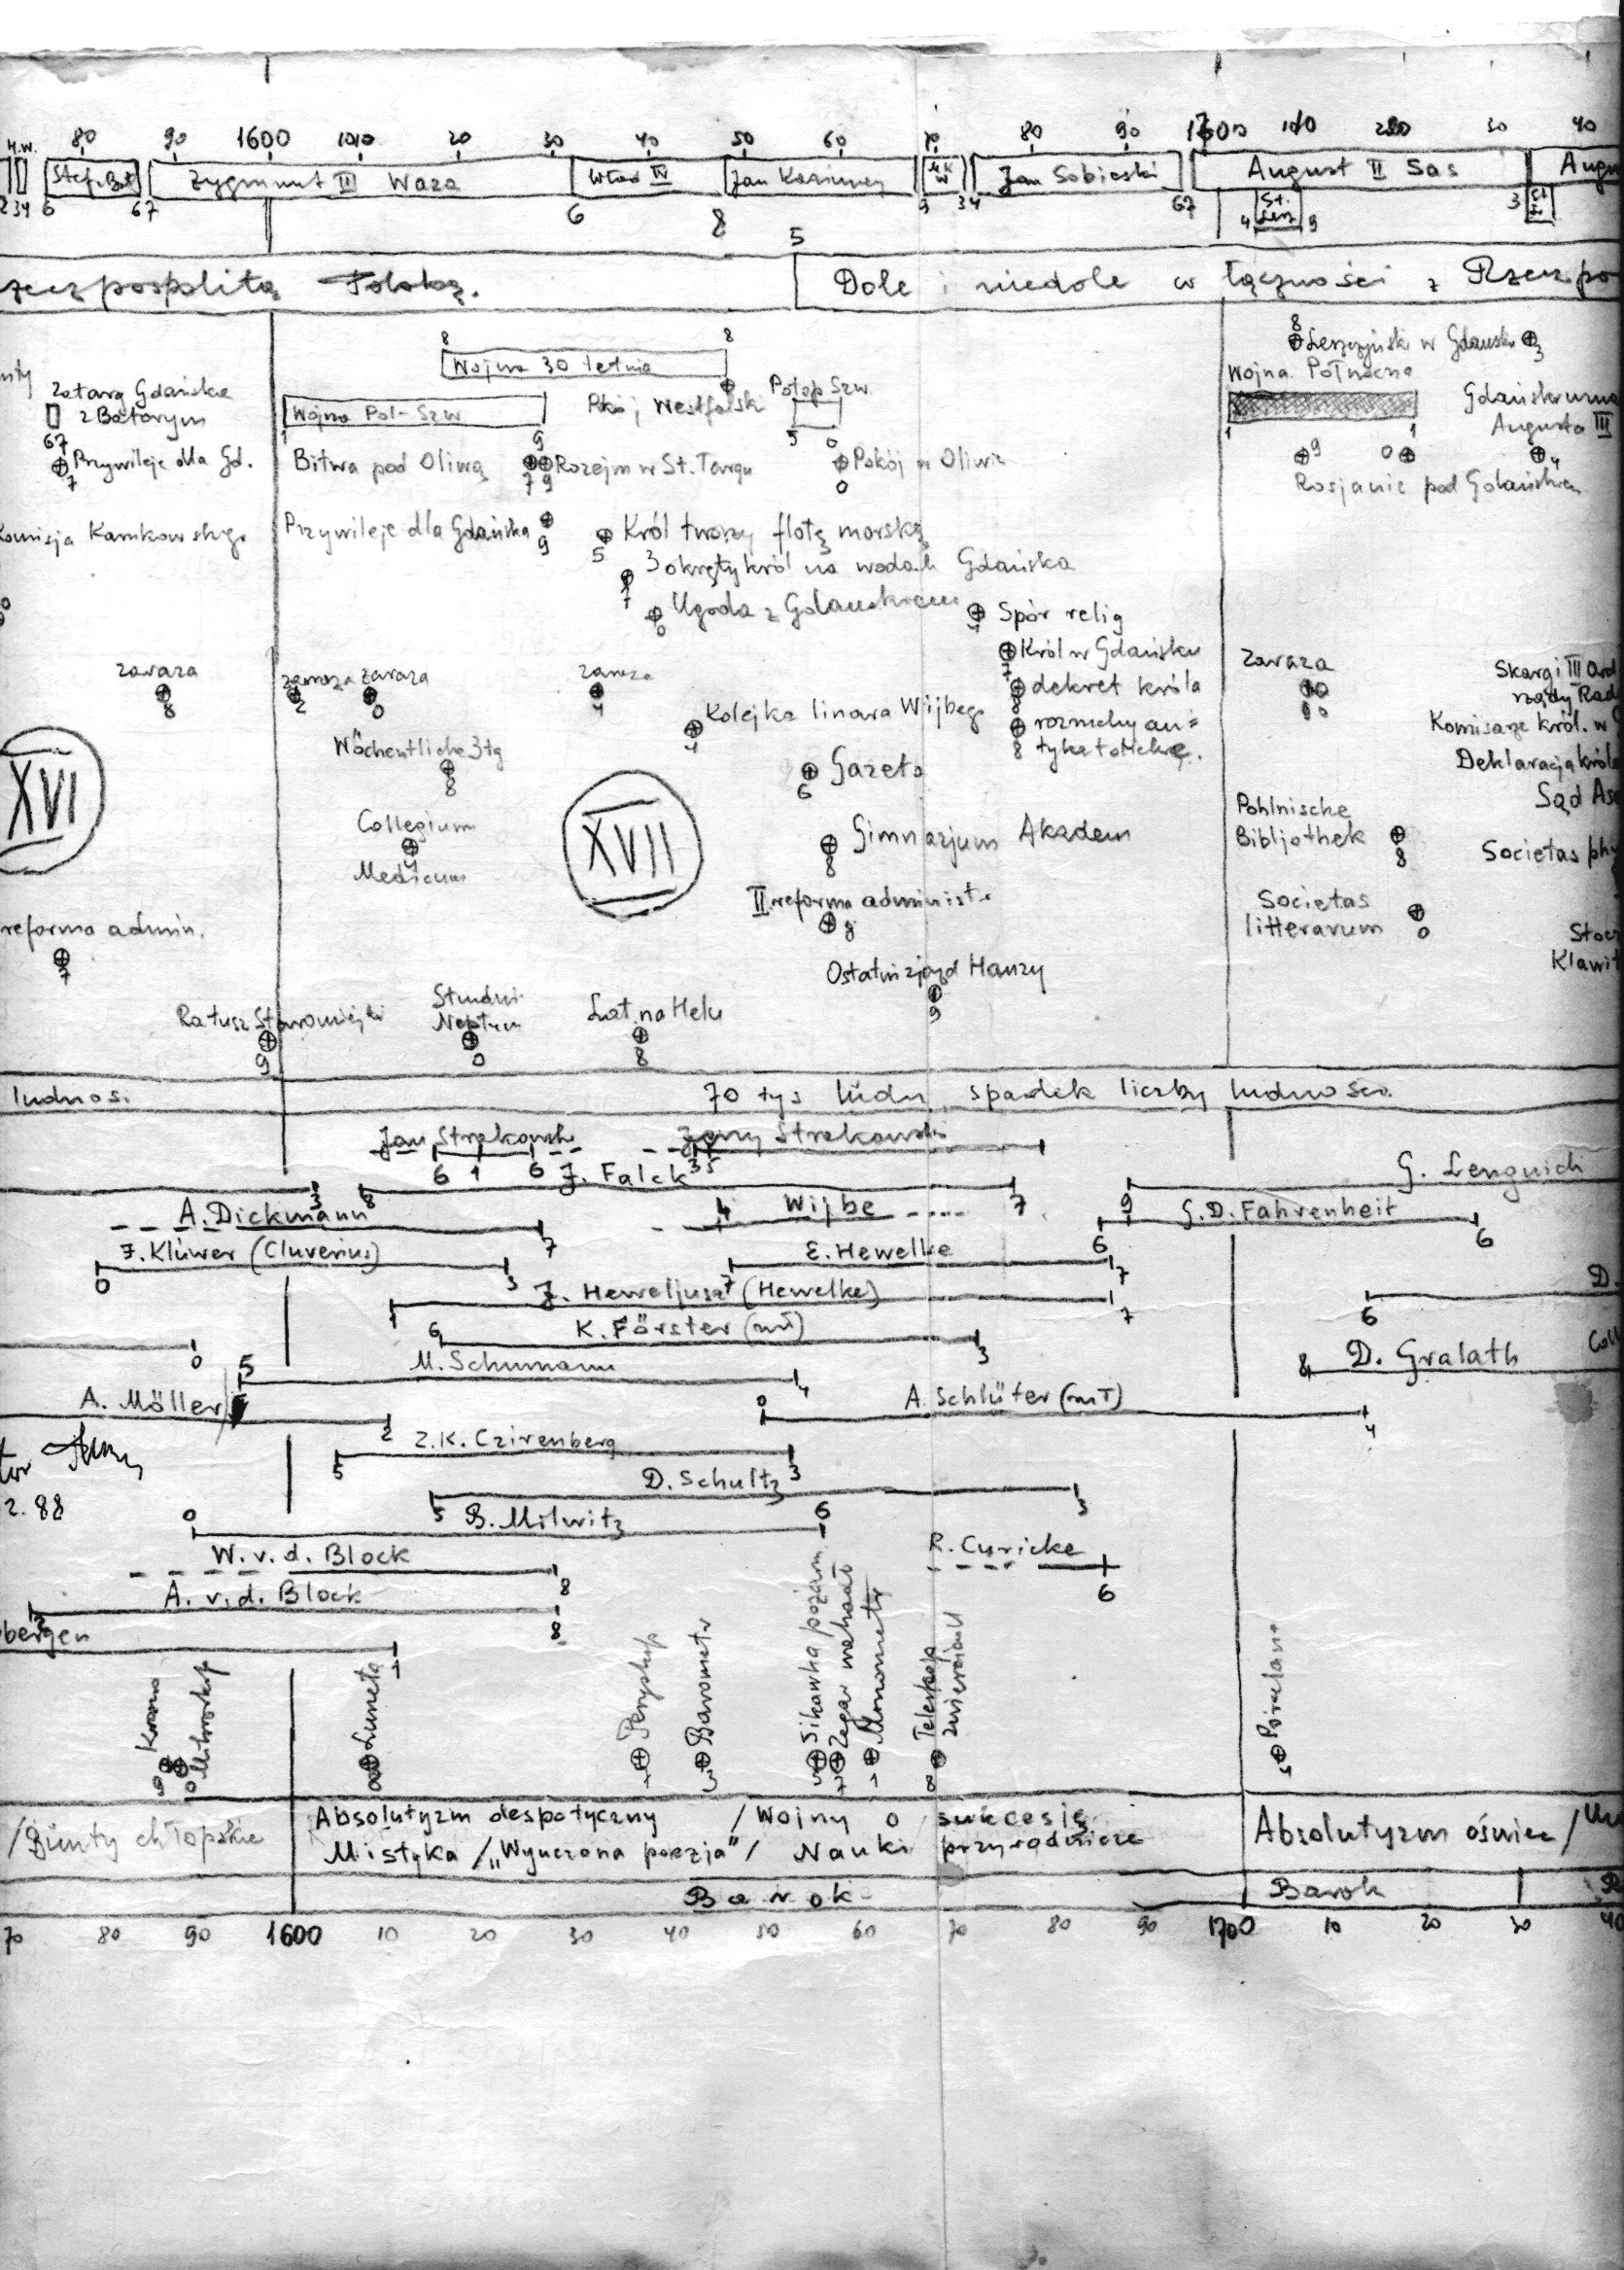 80 90 1600 10 20 30 40 50 60 70 80 90 1700 10 20 30 40
Stef. Bat Zygmunt III Waza Wład IV Jan Kazimierz M K W Jan Sobieski August II Sas Augu
2 34 6 67 6 8 9 34 67 4 St. Lesz 9 3
5
zeczpospolitą Polską. Dole i niedole w łączności z Rzeczpo
8 8
Wojna 30 letnia
8 Leszczyński w Gdańsku 3
Wojna Północna
Zatarg Gdańska
z Batorym
67
Wojna Pol-Szw
1 9
Pokój Westfalski
Potop Szw.
5 0
1 1
Gdańsk uzna
Augusta III
Przywileje dla Gd.
7
Bitwa pod Oliwą
7 9
Rozejm w St. Targu
Pokój w Oliwie
0
9 0 4
Rosjanie pod Gdańskiem
Komisja Karnkowskiego
Przywileje dla Gdańska
9
Król tworzy flotę morską
5
3 okręty król na wodach Gdańska
7
Ugoda z Gdańskiem
0
Spór relig
4
Król w Gdańsku
7
dekret króla
8
rozruchy an=
tykatolickie.
8
zaraza
8
zaraza
2
zaraza
0
zaraza
4
Zaraza
Kolejka linowa Wijbego
4
Skargi III Ord
rządy Rad
Komisarze król. w
Deklaracja króla
Sąd As
Wöchentliche Ztg
8
Gazeta
6
XVI
XVII
Collegium
Medicum
4
Gimnazjum Akadem
8
Pohlnische
Bibljothek
8
Societas phy
II reforma administr
8
Societas
litterarum
0
reforma admin.
7
Stocz
Klawit
Ostatni zjazd Hanzy
9
Ratusz Staromiejski
9
Studnia
Neptun
0
Lat. na Helu
8
ludnoś. 70 tys ludn spadek liczby ludności
Jan Strakowski
6 1 6
Jerzy Strakowski
3 5
J. Falck
8 7
G. Lengnich
9
3
A. Dickmann
7
Wijbe
4
G.D. Fahrenheit
6 6
J. Klüwer (Cluverius)
0 3
E. Hewelke
7 7
J. Heweljusz (Hewelke)
1 7
D.
6
K. Förster (mł)
6 3
0
M. Schumann
5 4
D. Gralath
8
A. Möller
2
A. Schlüter (mł)
0 4
Z.K. Czirenberg
5 3
2.88
D. Schultz
5 3
B. Milwitz
0 6
W.v.d. Block
8
R. Curicke
6
A. v.d. Block
2 8
bergen
1
Krosno
9
Mikroskop
0
Luneta
8
Peryskop
7
Barometr
3
Sikawka pożarn.
Zegar wahadł
7
Manometr
1
Teleskop
zwierciadl
8
Porcelana
4
/Bunty chłopskie Absolutyzm despotyczny / Wojny o sukcesję Absolutyzm oświec /
Mistyka / „Wyuczona poezja" / Nauki przyrodnicze
Barok Barok
70 80 90 1600 10 20 30 40 50 60 70 80 90 1700 10 20 30 40